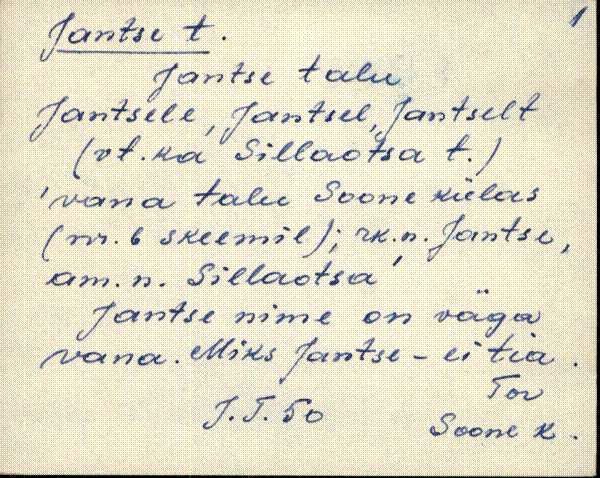 1
Jantse t.
Jantse talu
Jantsele, Jantsel, Jantselt
(vt. ka Sillaotsa t.)
'vana talu Soone külas
(nr. 6 skeemil); rk. n. Jantse,
am. n. Sillaotsa'
Jantse nime on väga
vana. Miks Jantse - ei tia.
Tor
J. T. 50
Soone k.